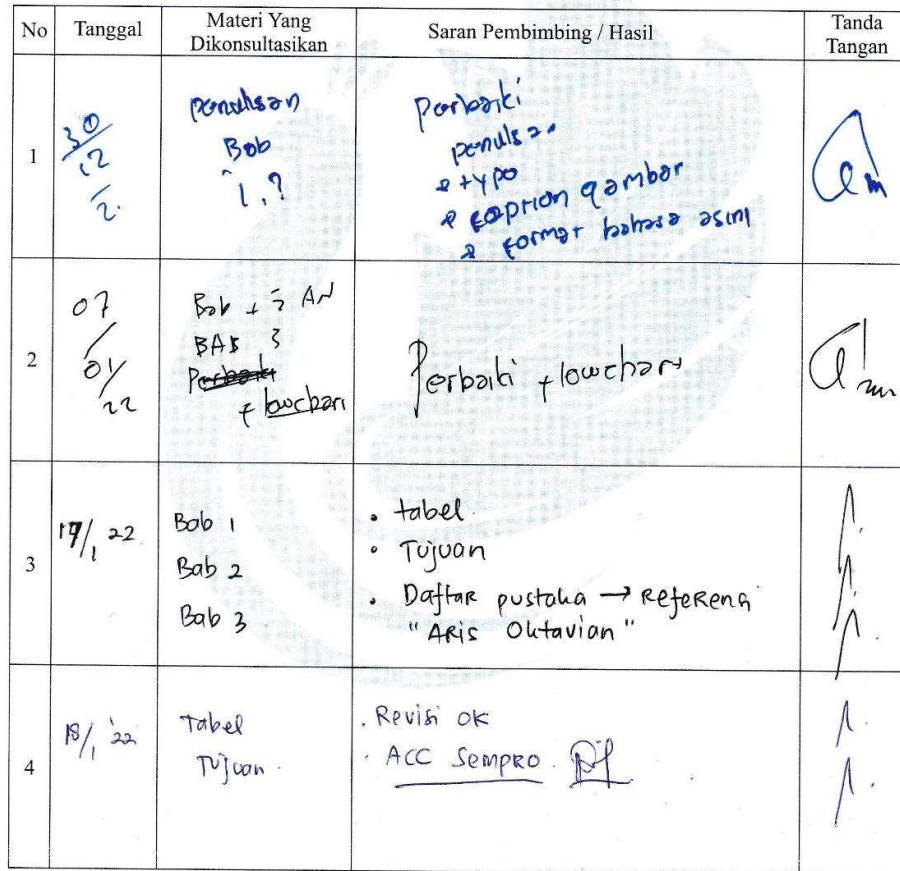 No
Tanggal
Materi Yang
Dikonsultasikan
Saran Pembimbing / Hasil
Tanda
Tangan
1
30
12
2.
penulisan
Bab
1.
Perbaiki
penulisan
typo
caption gambar
format bahasa asing
2
07
/
01/
22
Bab
BAB 3
Perbaiki
flowchart
Perbaiki flowchart
3
/1 22
Bab 1
Bab 2
Bab 3
• tabel
• Tujuan
• Daftar pustaka → Referensi
"ARis Oktavian"
4
18/1 '22
Tabel
Tujuan
. Revisi OK
. ACC Sempro